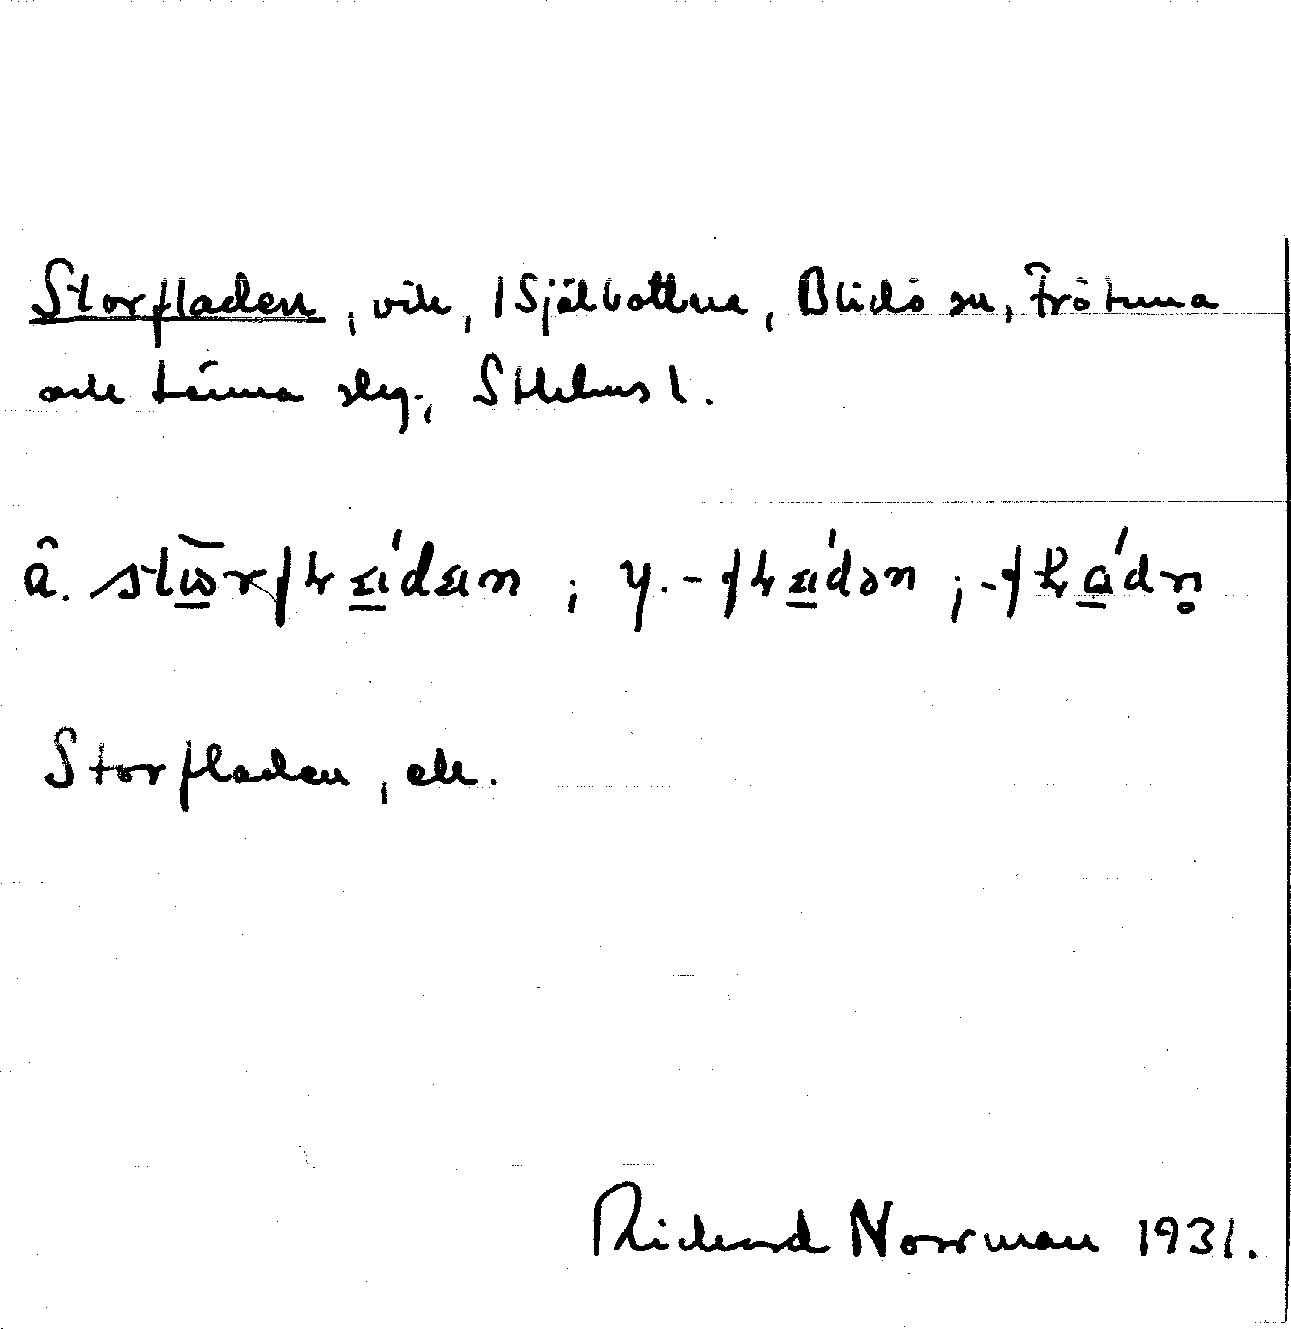 Storfladen, vik, Själbottna, Blidö sn, Frötuna
och Länna skg., Sthlms l.
â. stωrfłaʹdan ; y. -fłaʹdən ; -fłaʹdn̥
Storfladen, ek.
Rickard Norrman 1931.